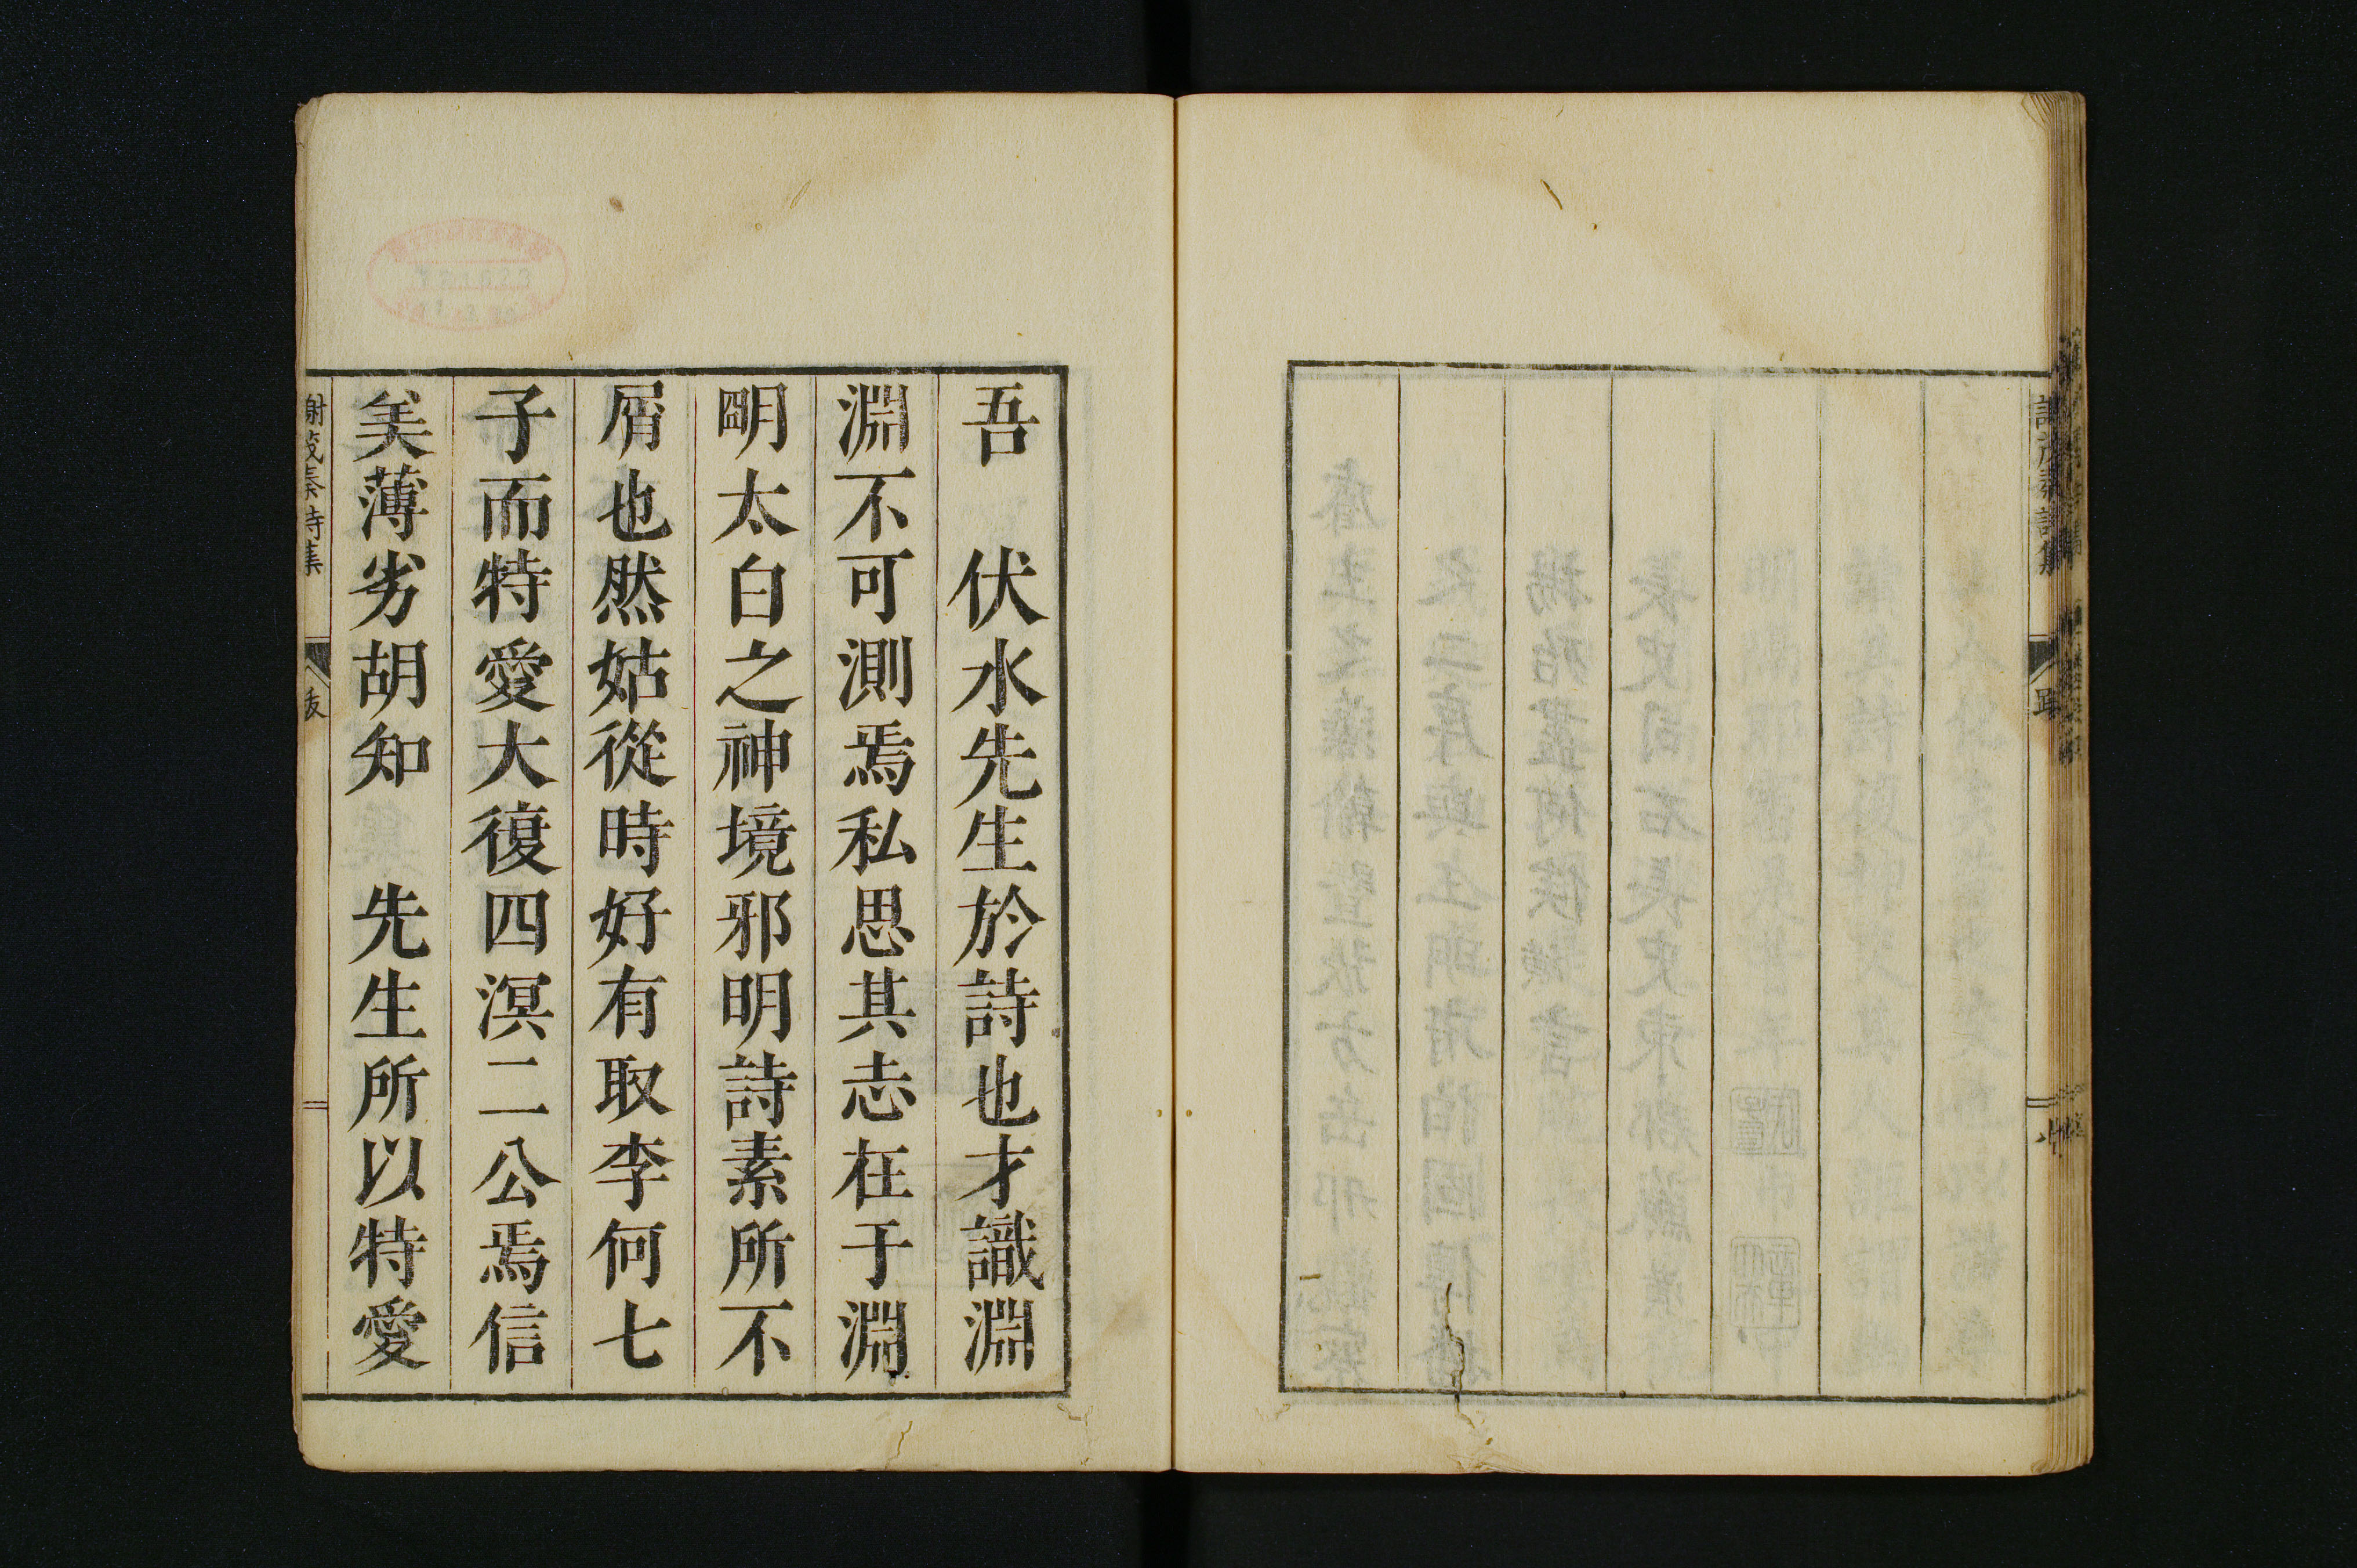 吾　伏水先生於詩也才識淵
淵不可測焉私思其志在于淵
明太白之神境邪明詩素所不
屑也然姑從時好有取李何七
子而特愛大復四溟二公焉信
美薄劣胡知　先生所以特愛
謝茂秦詩集